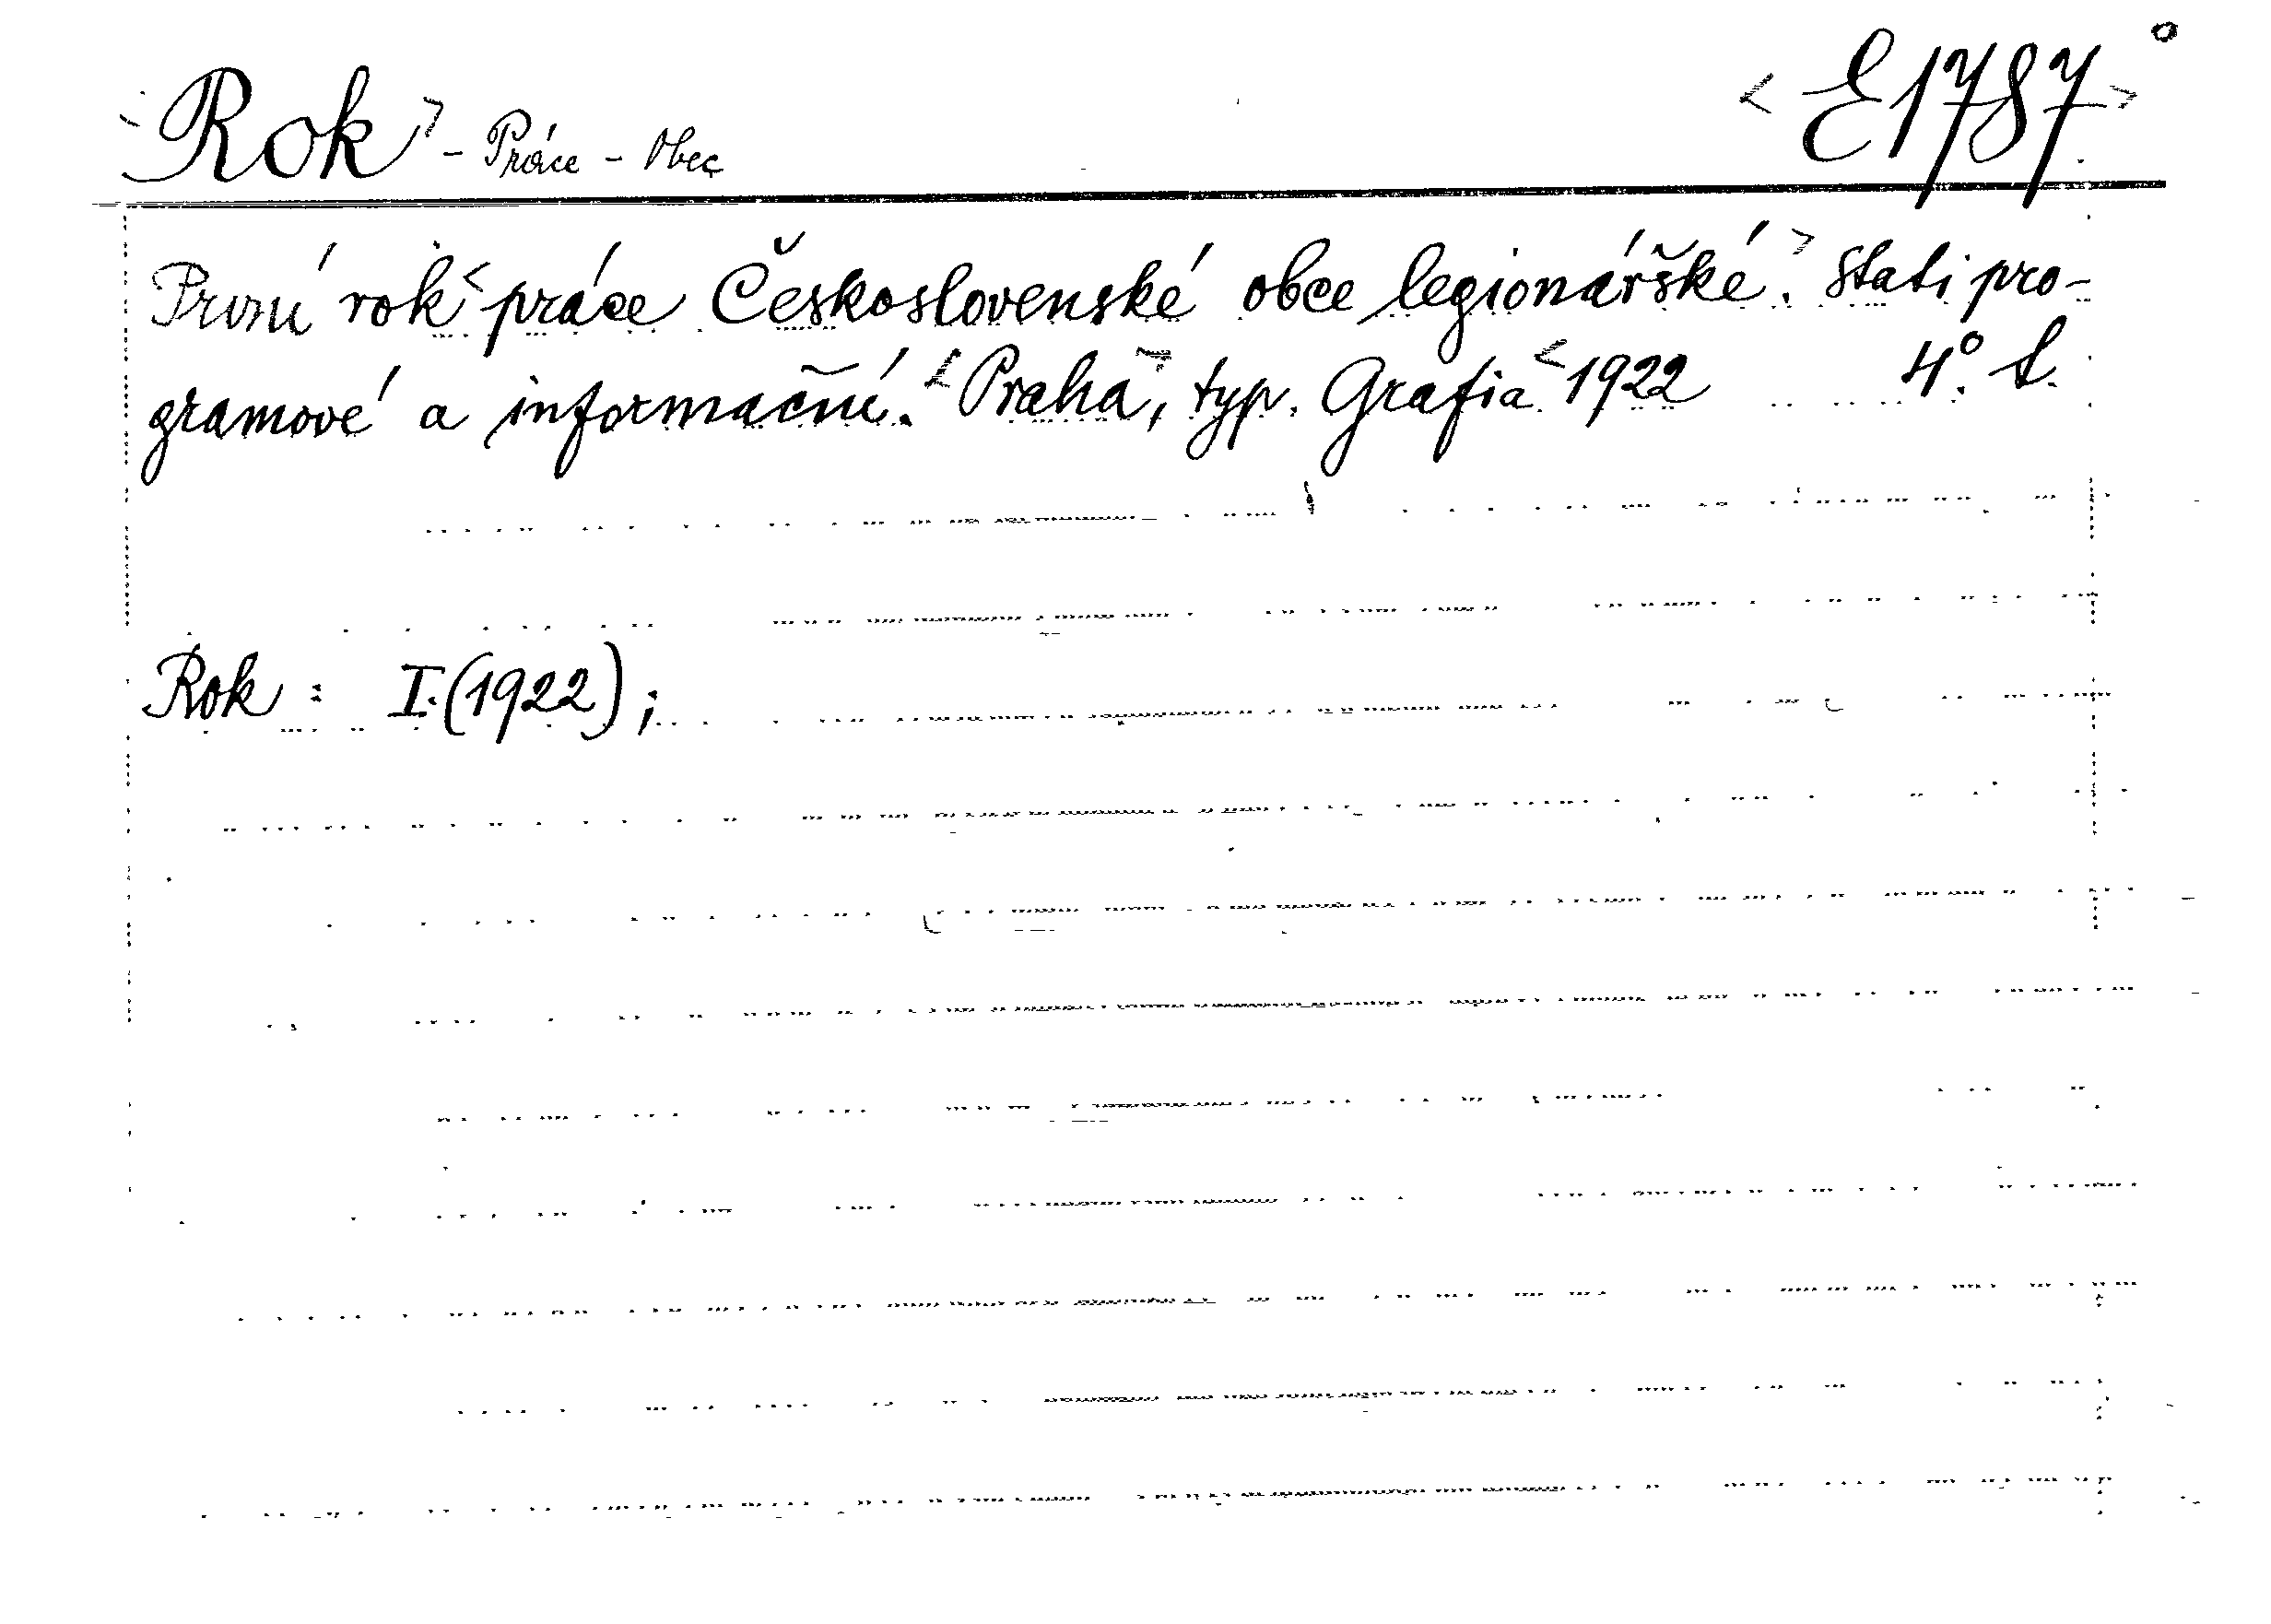 <Rok> - Práce - Obec <E1787>°
První rok <práce Československé obce legionářské.> Stati pro-
gramové a informační. <Praha>, typ. Grafia <1922 4°.
Rok: I.(1922);